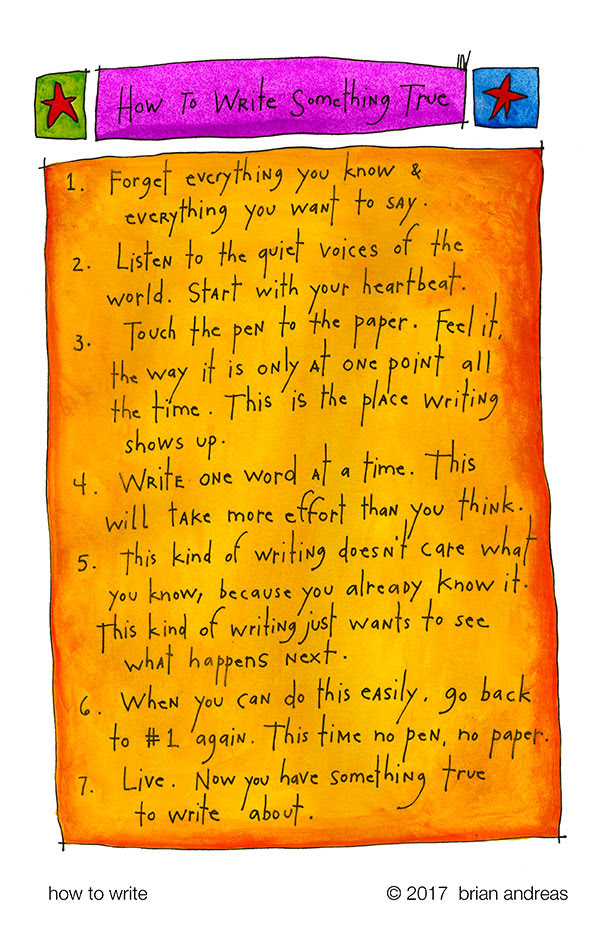 How To Write Something True
1. Forget everything you know &
everything you want to say.
2. Listen to the quiet voices of the
world. Start with your heartbeat.
3. Touch the pen to the paper. Feel it,
the way it is only at one point all
the time. This is the place writing
shows up.
4. Write one word at a time. This
will take more effort than you think.
5. This kind of writing doesn't care what
you know, because you already know it.
This kind of writing just wants to see
what happens next.
6. When you can do this easily, go back
to #1 again. This time no pen, no paper.
7. Live. Now you have something true
to write about.
how to write © 2017 brian andreas